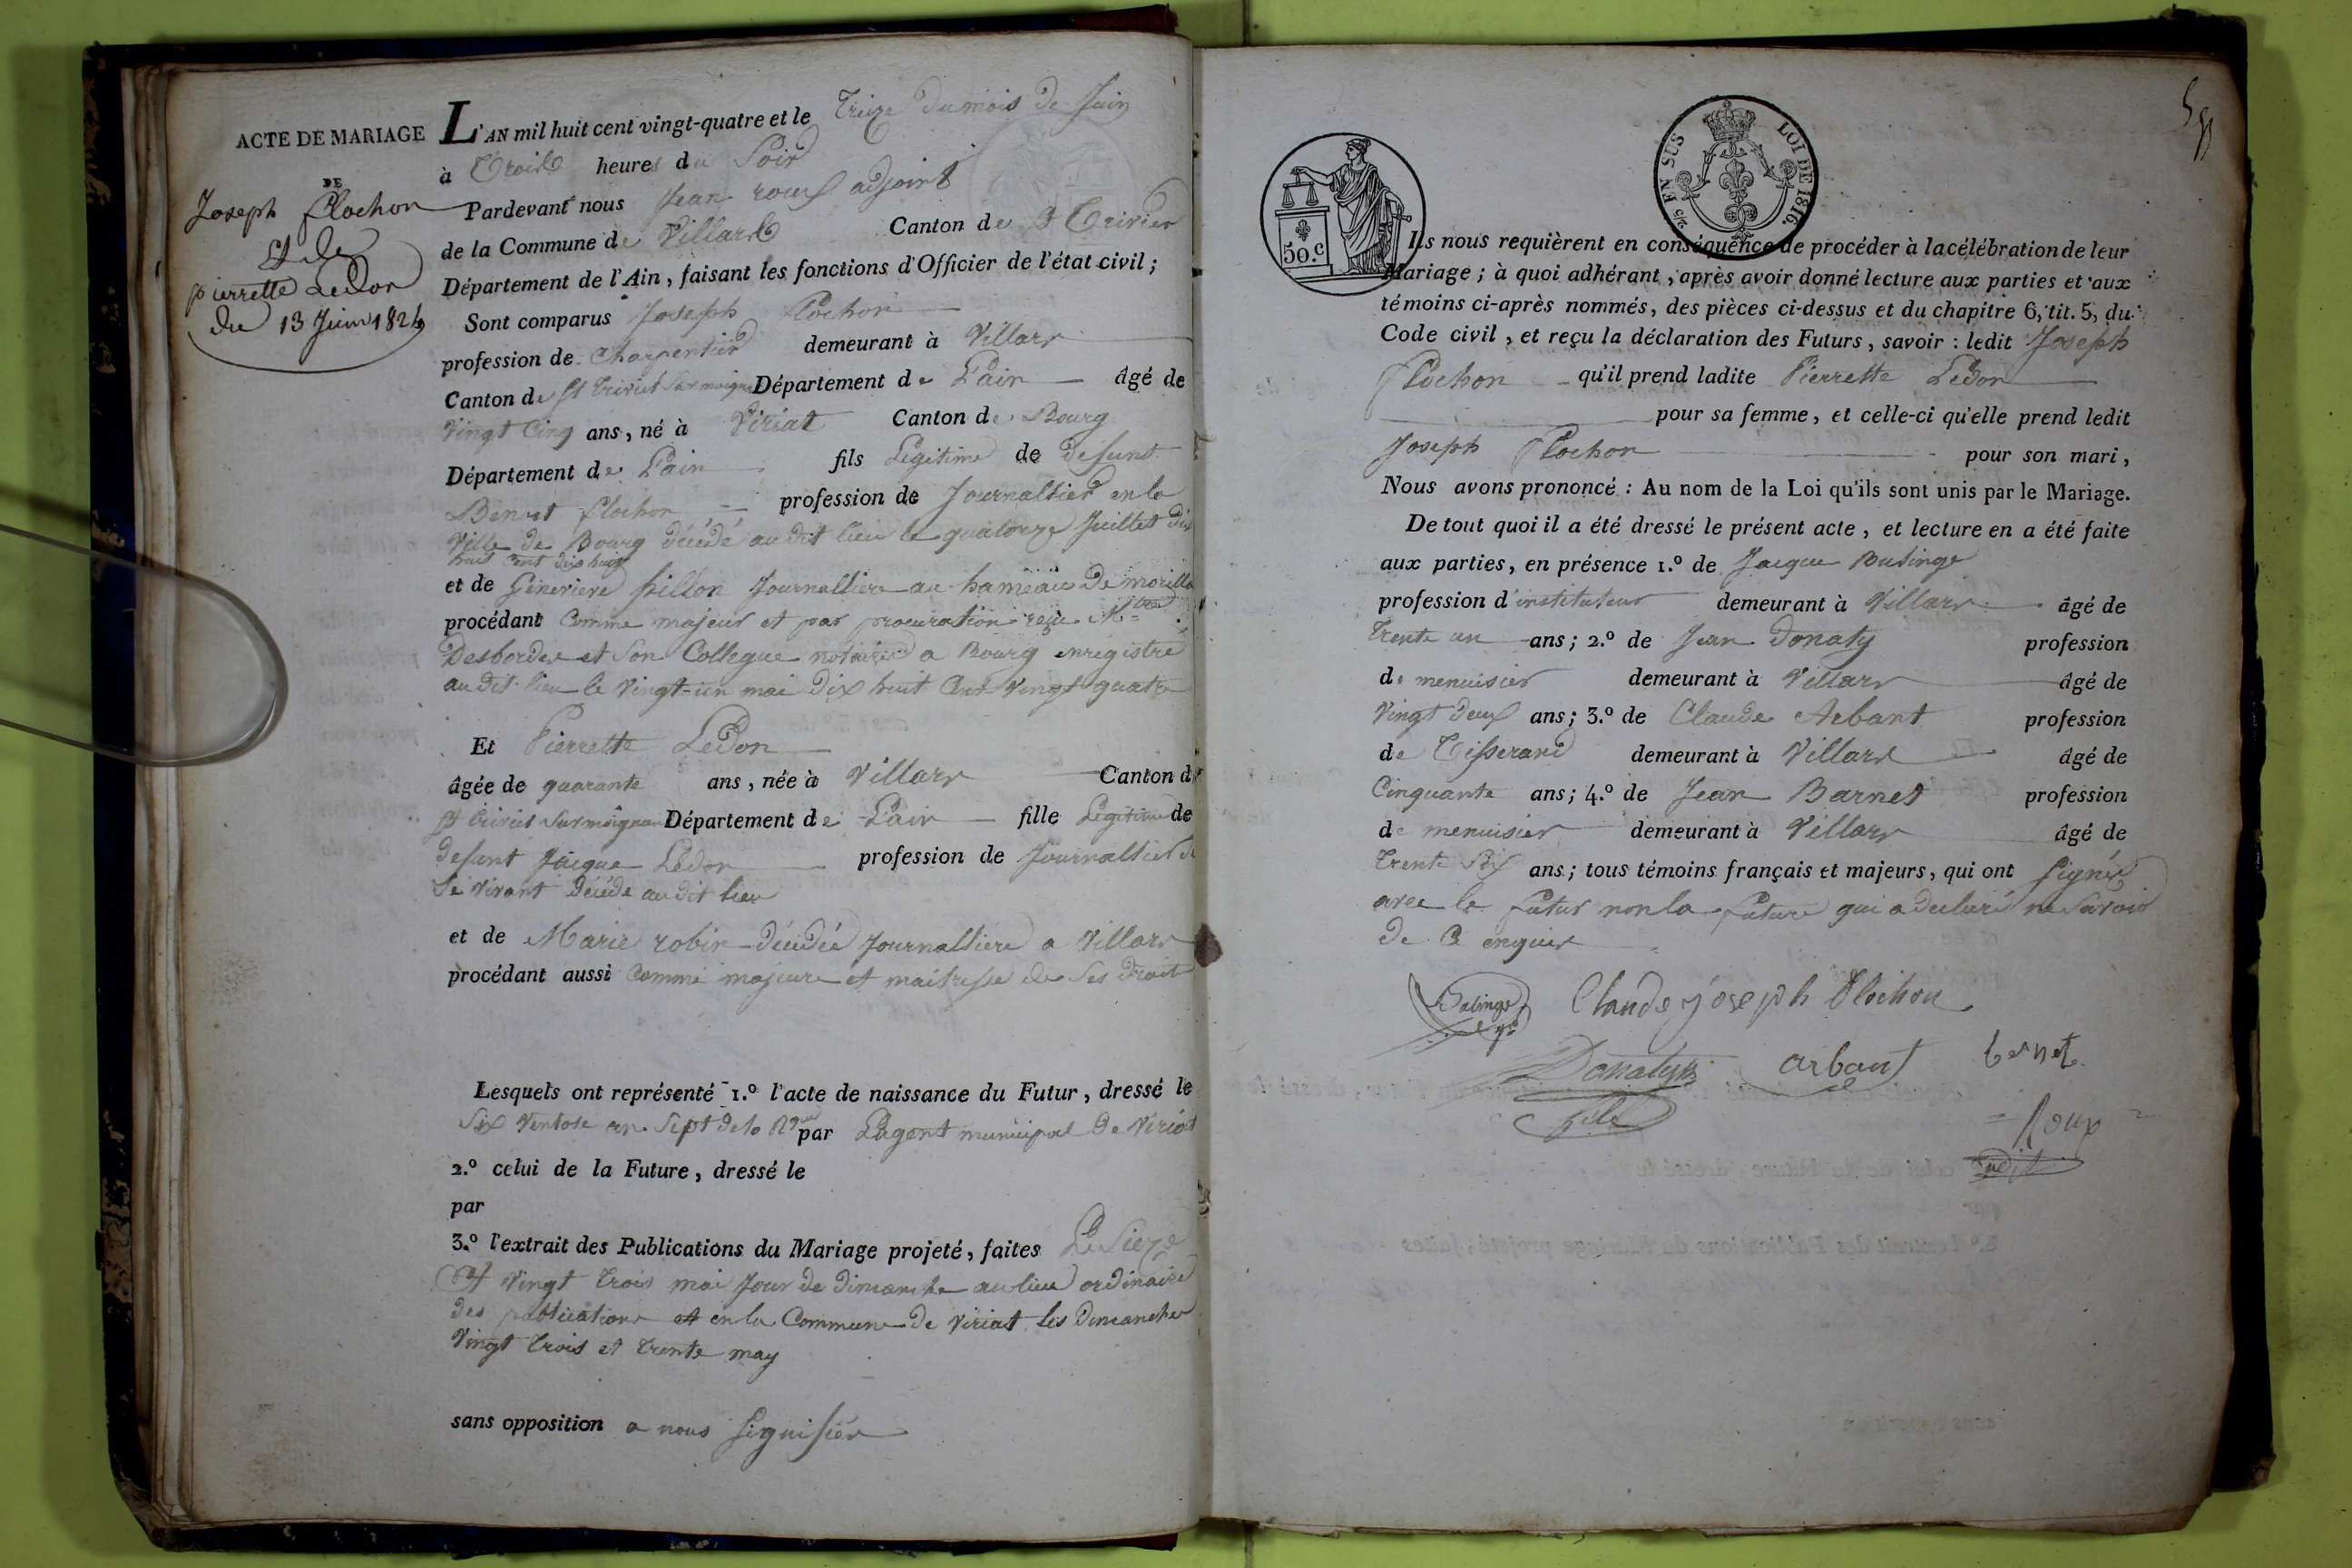 ACTE DE MARIAGE
DE
Joseph Plochon
Et de
pierrette Ledon
du 13 Juin 1824
L'AN mil huit cent vingt-quatre et le Treize du mois de Juin
à Trois heures du Soir
Pardevant nous Jean roux adjoint
de la Commune de Villars Canton de St Trivier
Département de l'Ain, faisant les fonctions d'Officier de l'état civil;
Sont comparus Joseph Plochon
profession de Charpentier demeurant à Villars
Canton de St Trivier Sur moignan Département de L'ain âgé de
Vingt Cinq ans, né à Viriat Canton de Bourg
Département de L'ain fils Legitime de defunt
Benoit Plochon profession de Journallier en la
Ville de Bourg décédé au dit lieu le quatorze Juillet dix
huit Cent dix huit
et de Génevieve pillon Journalliere au hameau de
procédant Comme majeur et par procuration reçue Mtre
Desbordes et Son Collegue notaire a Bourg enregistré
au dit lieu le Vingt-un mai Dix huit Cent Vingt quatre
Et Pierrette Ledon
âgée de quarante ans, née à Villars Canton de
St Trivier Sur moignan Département de L'ain fille Legitime de
defunt Jacque Ledon profession de Journallier de
Se vivant décédé au dit lieu
et de Marie robin décédée Journalliere a Villars
procédant aussi Comme majeure et maitresse de Ses droit
Lesquels ont représenté 1.º l'acte de naissance du Futur, dressé le
Six Ventose an Sept de la par L'agent municipal de Viriat
2.º celui de la Future, dressé le
par
3.º l'extrait des Publications du Mariage projeté, faites Le Sieze
Et Vingt trois mai Jour de dimanche au lieu ordinaire
des publications et en la Commune de Viriat les dimanche
Vingt trois et trente may
sans opposition a nous Signifiér
50.C
2/5 EN SUS LOI DE 1816.
Ils nous requièrent en conséquence de procéder à la célébration de leur
Mariage; à quoi adhérant, après avoir donné lecture aux parties et aux
témoins ci-après nommés, des pièces ci-dessus et du chapitre 6, tit. 5, du
Code civil, et reçu la déclaration des Futurs, savoir: ledit Joseph
Plochon qu'il prend ladite Pierrette Ledon
pour sa femme, et celle-ci qu'elle prend ledit
Joseph Plochon pour son mari,
Nous avons prononcé: Au nom de la Loi qu'ils sont unis par le Mariage.
De tout quoi il a été dressé le présent acte, et lecture en a été faite
aux parties, en présence 1.º de Jacque
profession d'instituteur demeurant à Villars âgé de
Trente un ans; 2.º de Jean Donaty profession
de menuisier demeurant à Villars âgé de
Vingt deux ans; 3.º de Claude Arbant profession
de Tisserand demeurant à Villars âgé de
Cinquante ans; 4.º de Jean Barnet profession
de menuisier demeurant à Villars âgé de
Trente Six ans; tous témoins français et majeurs, qui ont Signé
avec le futur non la future qui a declaré ne Savoir
de Ce enquis
Claude joseph Plochon
arbant
bernet
fils
Roux
adjt